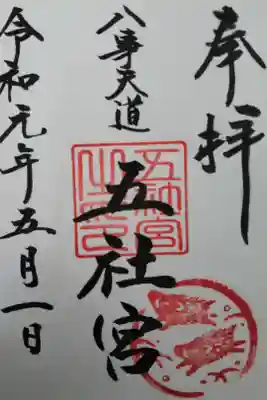 奉拝
八事天道
五社宮
五社宮
之印
令和元年五月一日